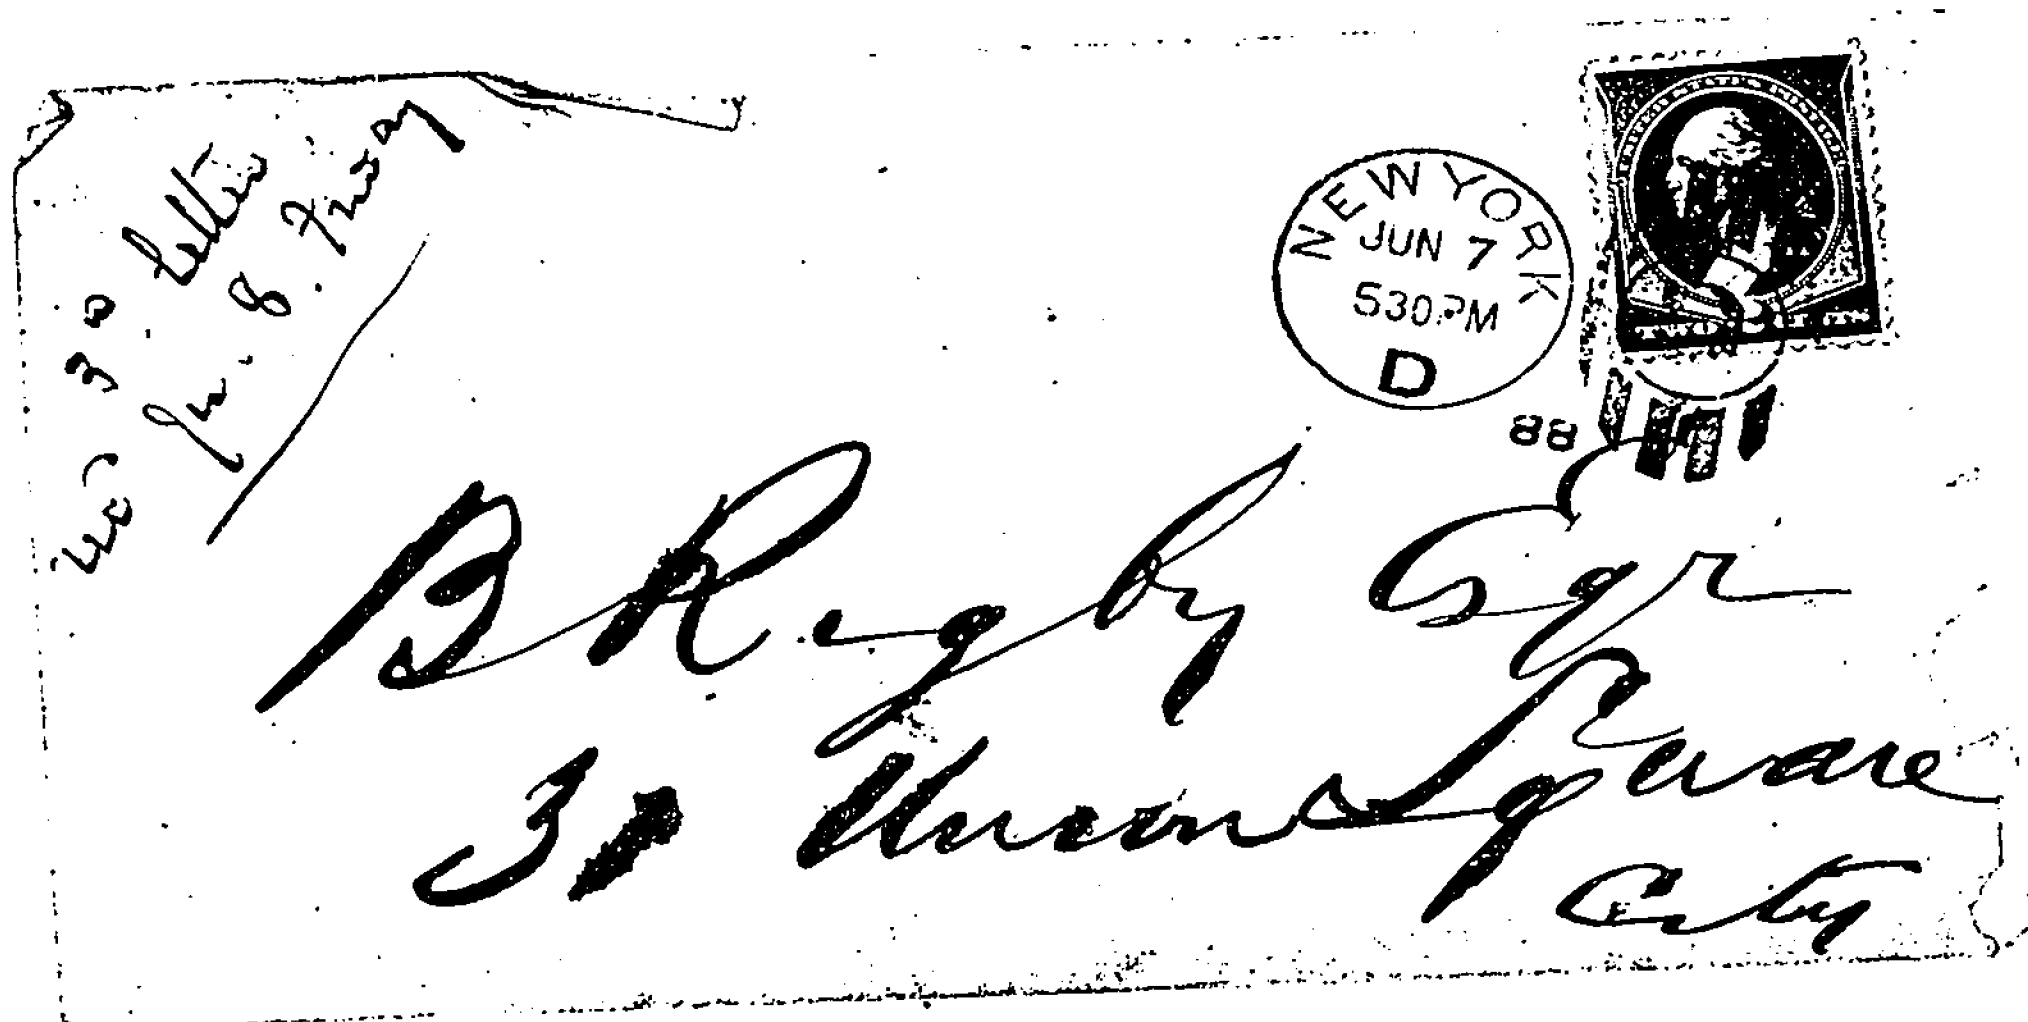 3 letter
NEW YORK
JUN 7
530 PM
D
88
UNITED STATES POSTAGE
TWO CENTS
B Rigby Esqr
31 Union Square
City